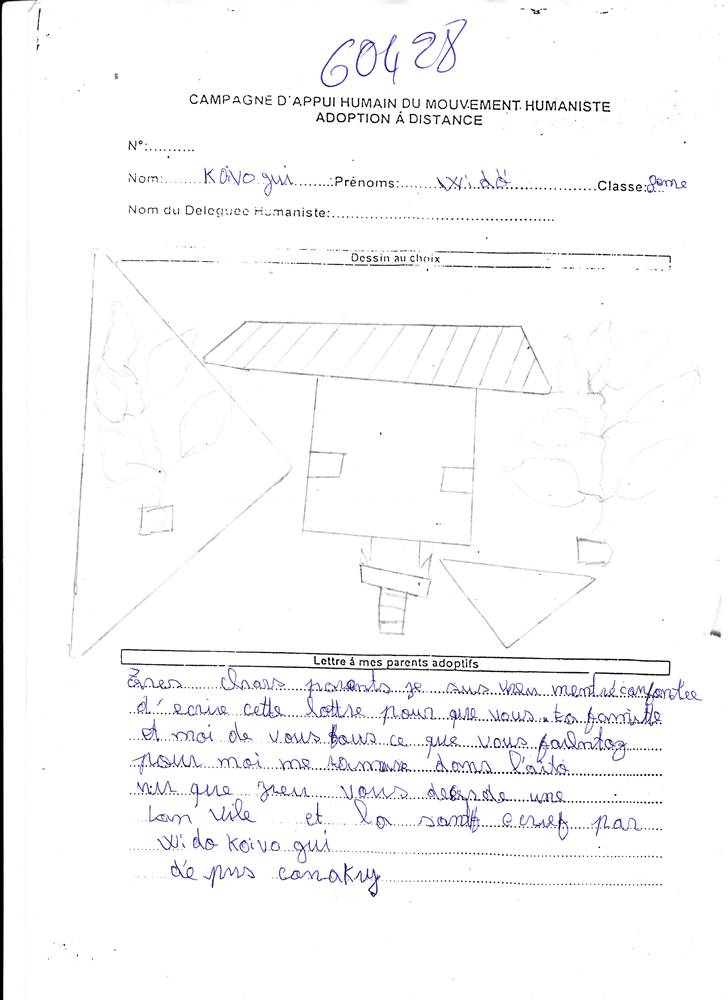 60428
CAMPAGNE D'APPUI HUMAIN DU MOUVEMENT HUMANISTE
ADOPTION À DISTANCE
N°:..........
Nom:......Koivogui.......:Prénoms:......Wido..................Classe:8eme
Nom du Deleguee Humaniste:................................................
Dessin au choix
Lettre á mes parents adoptifs
chars parents je sus vren ment récanfantee
d'ecrie cette lottre pour que vous ta famille
et moi de vous tous ce que vous
pour moi me dans
que vous une
vile et la par
Wido Koivogui
dé pus canakry